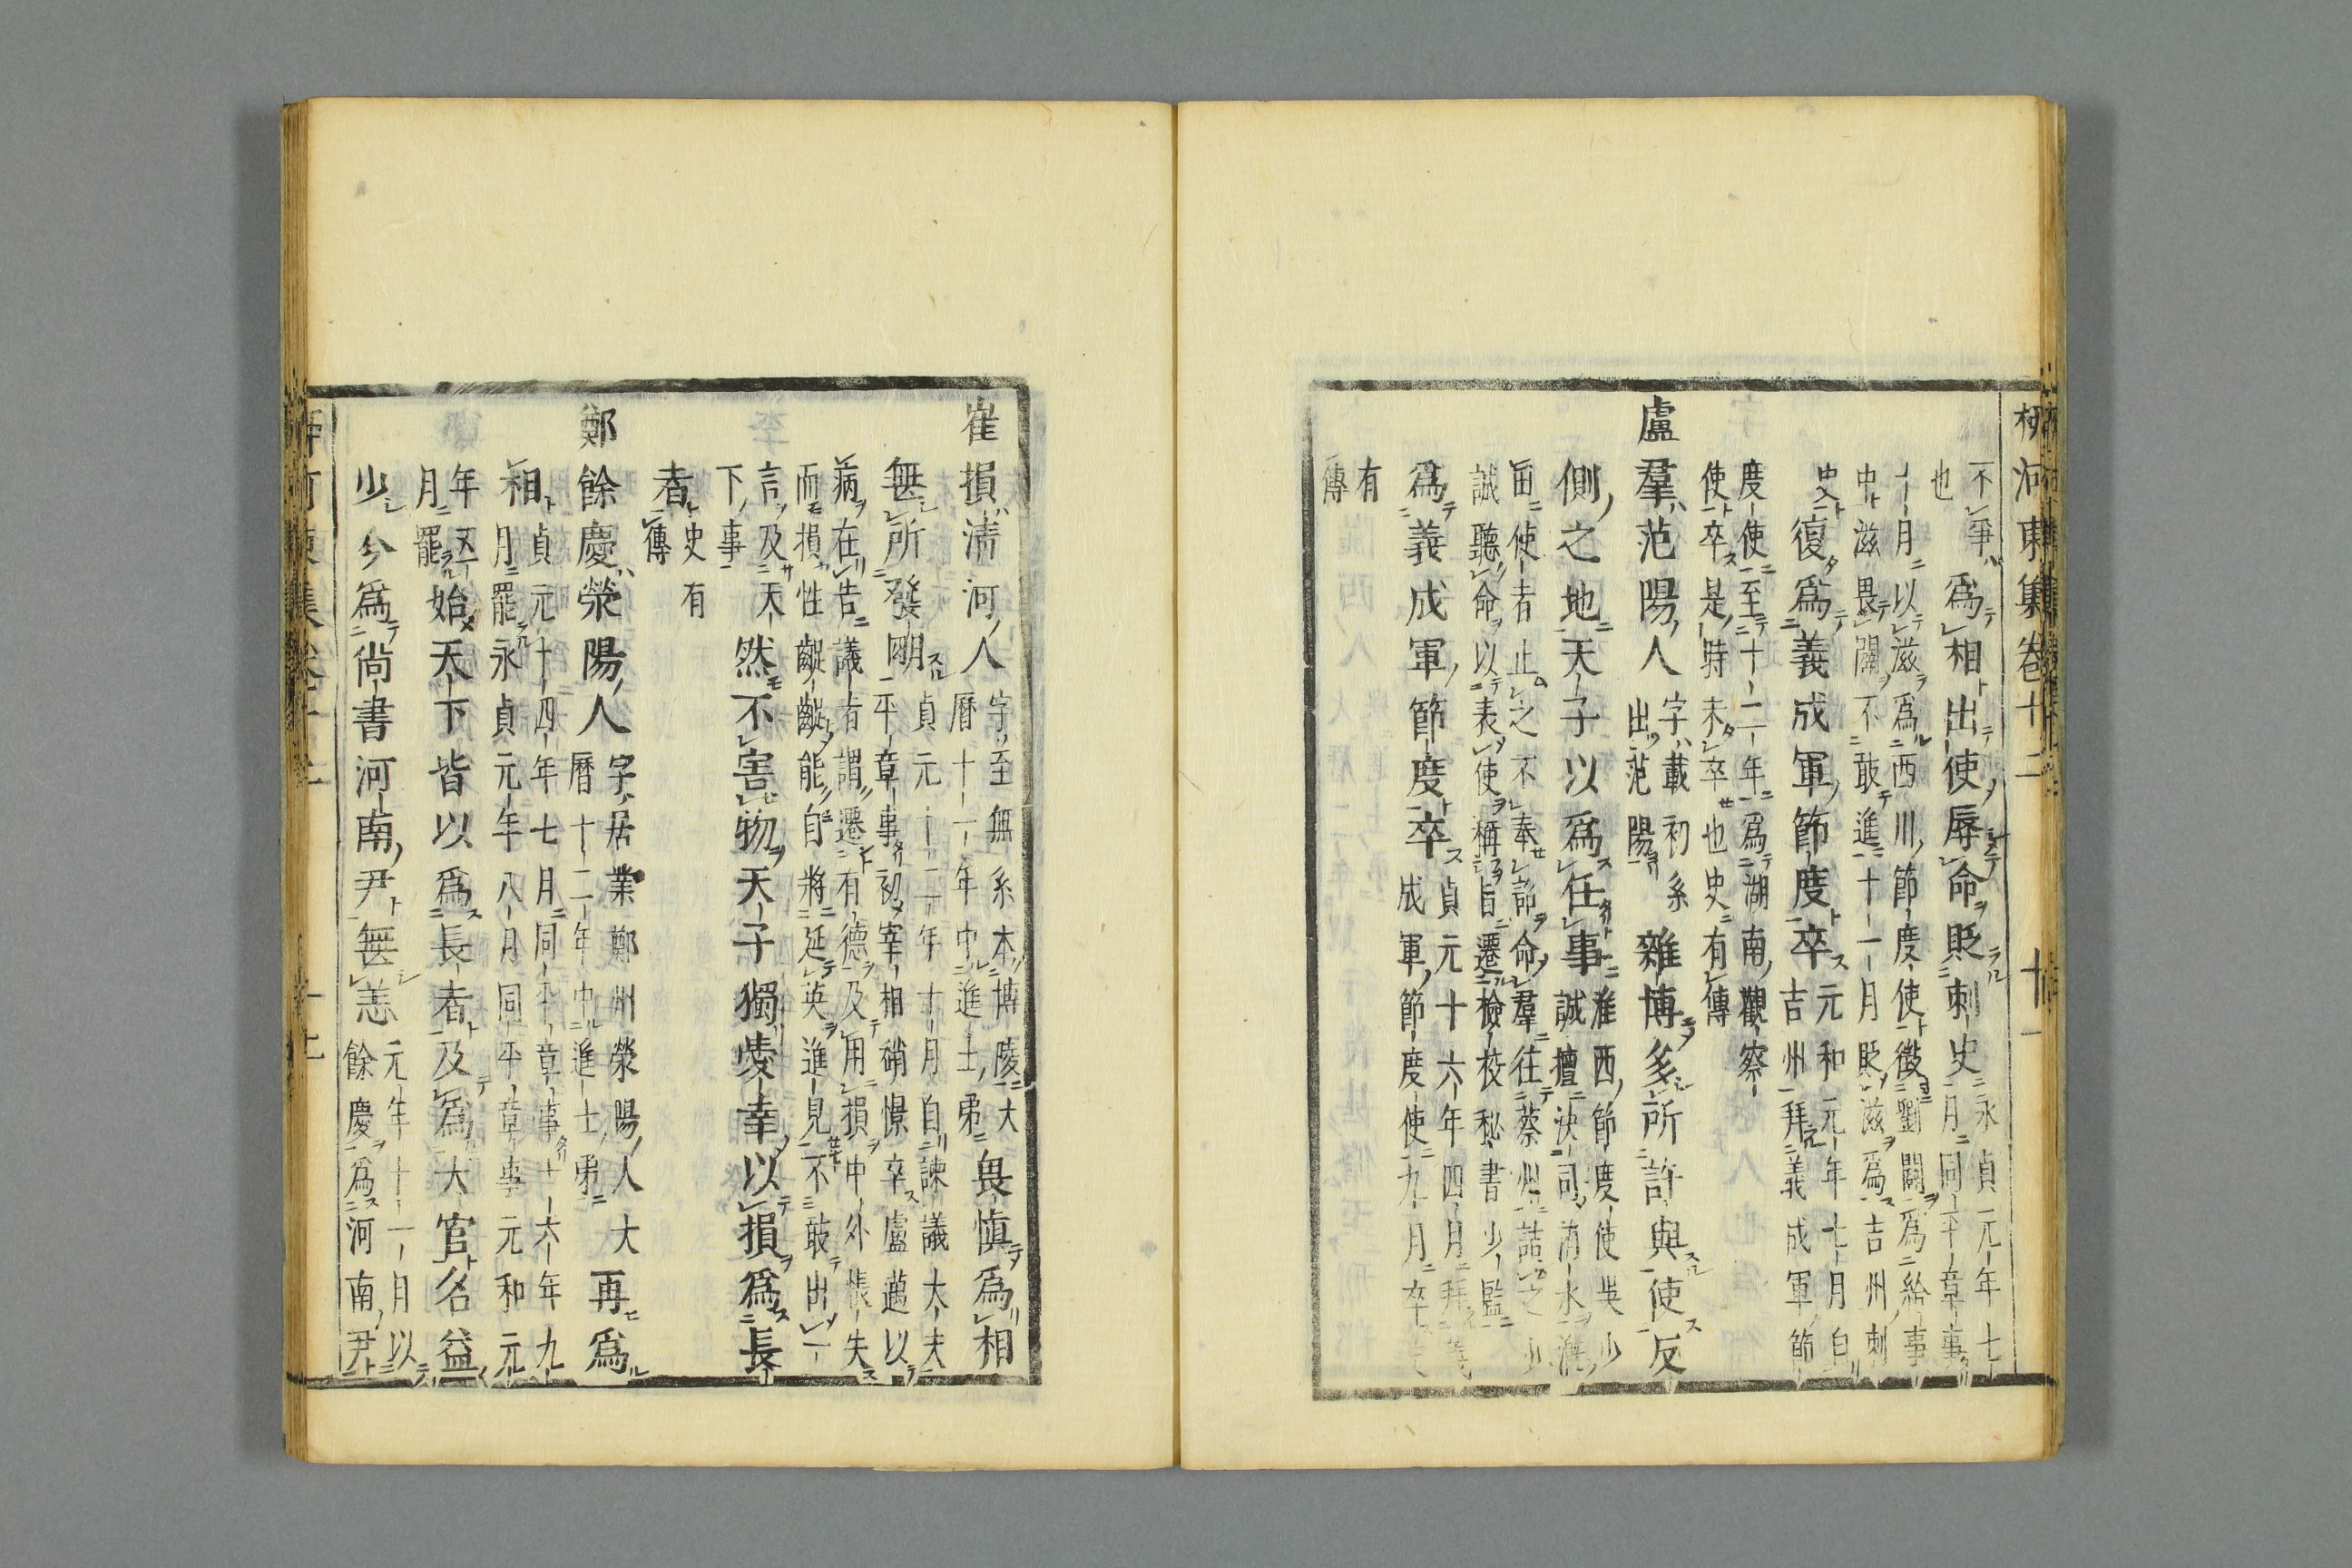 柳河東集卷十二
十一
不爭
也
爲相出使辱命貶刺史
永貞元年七
月同平章事
十月以滋爲西川節度使徵劉闢爲給事
中滋畏闢不敢進十一月貶滋爲吉州刺
史
復爲義成軍節度卒
元和元年七月自
吉州拜義成軍節
度使至十二年爲湖南觀察
使卒是時未卒也史有傳
盧羣范陽人
字載初系
出范陽
雜博多所許與使反
側之地天子以爲任事
淮西節度使吳少
誠擅決司洧水漑
田使者止之不奉詔命羣往蔡州詰之少
誠聽命以表使稱旨遷檢校秘書少監
爲義成軍節度卒
貞元十六年四月拜義
成軍節度使九月卒史
有
傳
崔損清河人
字至無系本博陵大
曆十一年中進士弟
毋愼爲相
無所發明
貞元十二年十月自諫議大夫
平章事初宰相硝憬卒盧邁以
病在告議者謂遷有德及用損中外悵失
而損性齪齪能自將延英進見不敢出一
言及天
下事
然不害物天子獨愛幸以損爲長
者
史有
傳
鄭餘慶滎陽人
字居業鄭州滎陽人大
曆十二年中進士弟
再爲
相
貞元十四年七月同平章事十六年九
月罷永貞元年八月同平章事元和元
年五
月罷
始天下皆以爲長者及爲大官名益
少今爲尚書河南尹無恙
元年十一月以
餘慶爲河南尹